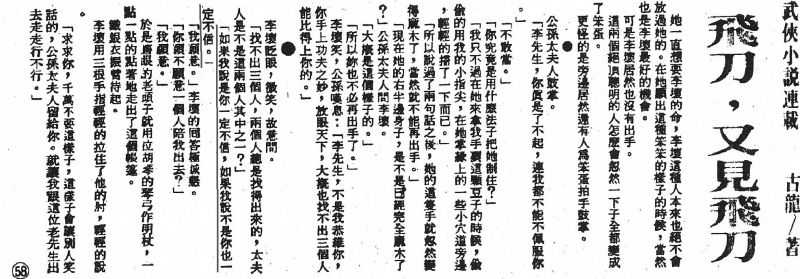 武俠小說連載
古龍/著
飛刀,又見飛刀
她一直想要李壞的命,李壞這種人本來也絕不會
放過她的。在她顯出這種笨笨的樣子的時候,當然
也是李壞最好的機會。
可是李壞居然也沒有出手。
這兩個絕頂聰明的人怎麼會忽然一下子全都變成
了笨蛋。
更怪的是旁邊居然還有人為笨蛋拍手鼓掌。
●
公孫太夫人鼓掌。
「李先生,你真是了不起,連我都不能不佩服你
。」
「不敢當。」
「你究竟是用什麼法子把她制住?」
「我只不過在她來拿我手裏這顆豆子的時候,偷
偷的用我的小指尖,在她掌緣上的一些小穴道旁邊
,輕輕的掃了一下而已。」
「所以說過了兩句話之後,她的這隻手就忽然變
得麻木了,當然就不能再出手。」
「現在她的右半邊身子,是不是已經完全麻木了
?」公孫太夫人問李壞。
「大概是這個樣子的。」
「所以妳也不必再出手了。」
李壞笑,公孫嘆息:「李先生,不是我恭維你,
你手上功夫之妙,放眼天下,大概也找不出三個人
能比得上你的。」
●
李壞眨眼,微笑,故意問。
「找不出三個人,兩個人總是找得出來的,太夫
人是不是這兩個人其中之一?」
「如果我說是你一定不信,如果我說不是你也一
定不信。」
「你願不願意一個人陪我出去?」
「我願意。」李壞的回答極誠懇。
「我願意。」
於是瞎眼的老頭子就用拉胡琴的琴弓作明杖,一
點一點的點著地走出了這個帳篷。
鐵銀衣振臂待起。
李壞用三根手指輕輕的拉住了他的肘,輕輕的說
「求求你,千萬不要這樣子,這樣子會讓別人笑
話的,公孫太夫人留給你。就讓我跟這位老先生出
去走走行不行。」
58